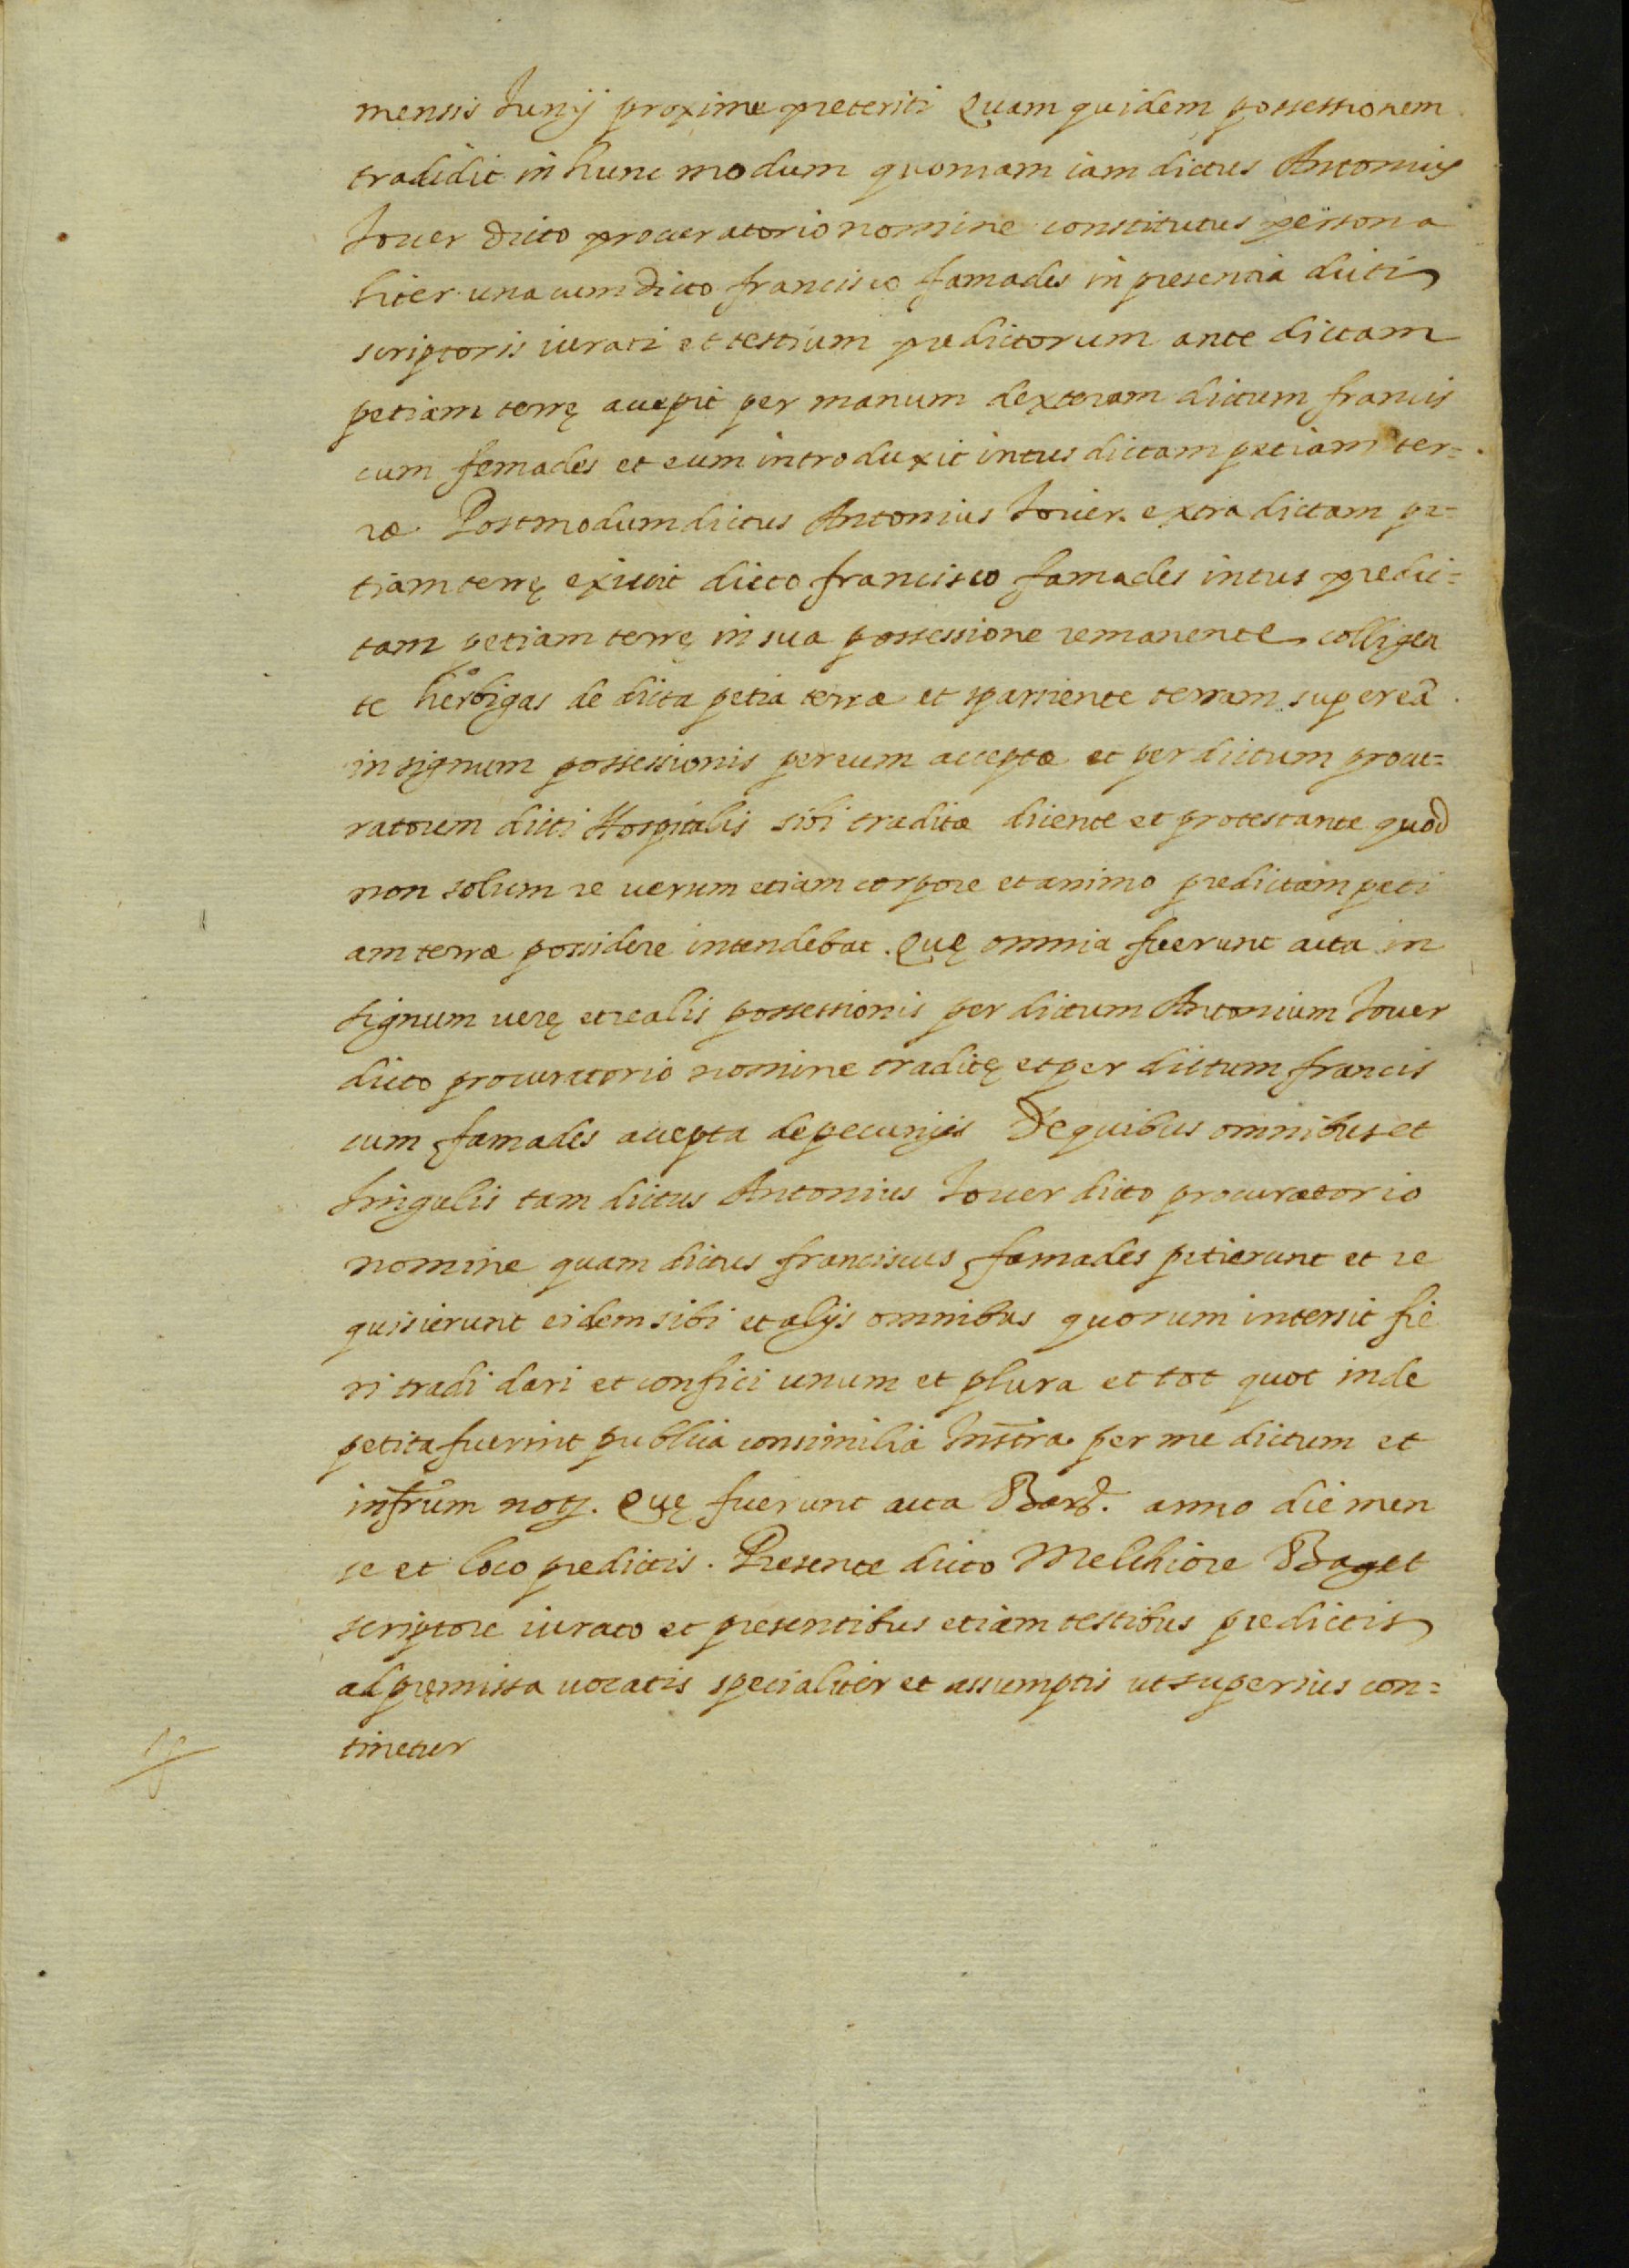 mensis Junij proxime preteriti Quam quidem possessionem
tradidit in hunc modum quoniam iam dictus Antonius
Jouer dicto procuratorio nomine constitutus persona
liter una cum dicto francisco famades in presentia dicti
scriptoris iurati et testium predictorum ante dictam
petiam terrę accepit per manum dexteram dictum francis
cum famades et eum introduxit intus dictam petiam ter=
ræ Postmodum dictus Antonius Jouer extra dictam pe=
tiam terrę exiuit dicto francisco famades intus predic=
tam petiam terrę in sua possessione remanente colligen
te herbigas de dicta petia terræ et sparsiente terram super eã
in signum possessionis per eum acceptæ et per dictum procu=
ratorem dicti Hospitalis sibi traditæ dicente et protestante quod
non solum re uerum etiam corpore et animo predictam peti
am terræ possidere intendebat. Quę omnia fuerunt acta in
signum uerę et realis possessionis per dictum Antonium Jouer
dicto procuratorio nomine traditę et per dictum francis
cum famades accepta de pecunijs De quibus omnibus et
singulis tam dictus Antonius Jouer dicto procuratorio
nomine quam dictus franciscus famades petierunt et re
quisierunt eidem sibi et alijs omnibus quorum intersit fie
ri tradi dari et confici unum et plura et tot quot inde
petita fuerint publica consimilia Instra per me dictum et
infrũm notm. Quę fuerunt acta Barð. anno die men
se et loco predictis. Presente dicto Melchiore Baget
scriptore iurato et presentibus etiam testibus predictis
ad pręmissa uocatis specialiter et assumptis ut superius con=
tinetur